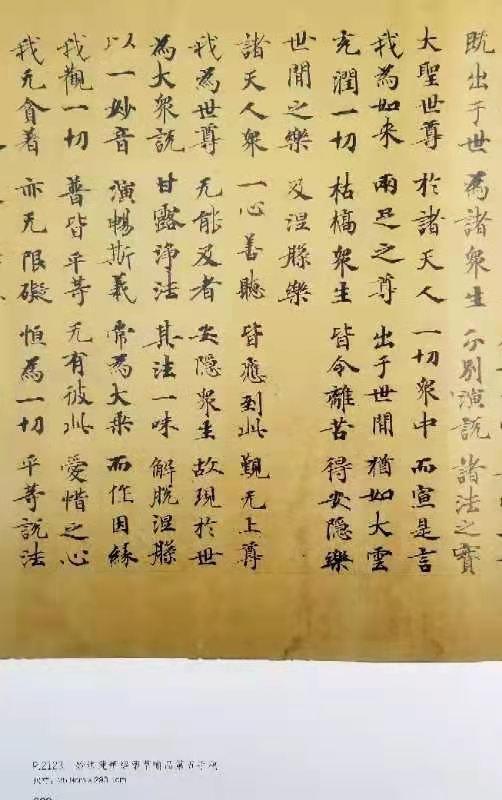 既出于世 為諸衆生 分別演說 諸法之實
大聖世尊 於諸天人 一切衆中 而宣是言
我為如來 兩足之尊 出于世間 猶如大雲
充潤一切 枯槁衆生 皆令離苦 得安隱樂
世間之樂 及涅槃樂
諸天人衆 一心善聽 皆應到此 覲无上尊
我為世尊 无能及者 安隱衆生 故現於世
為大衆說 甘露淨法 其法一味 解脫涅槃
以一妙音 演暢斯義 常為大乘 而作因緣
我觀一切 普皆平等 无有彼此 愛惜之心
我无貪著 亦无限礙 恒為一切 平等說法
P.2123 妙法蓮華經藥草喻品第五
尺寸: